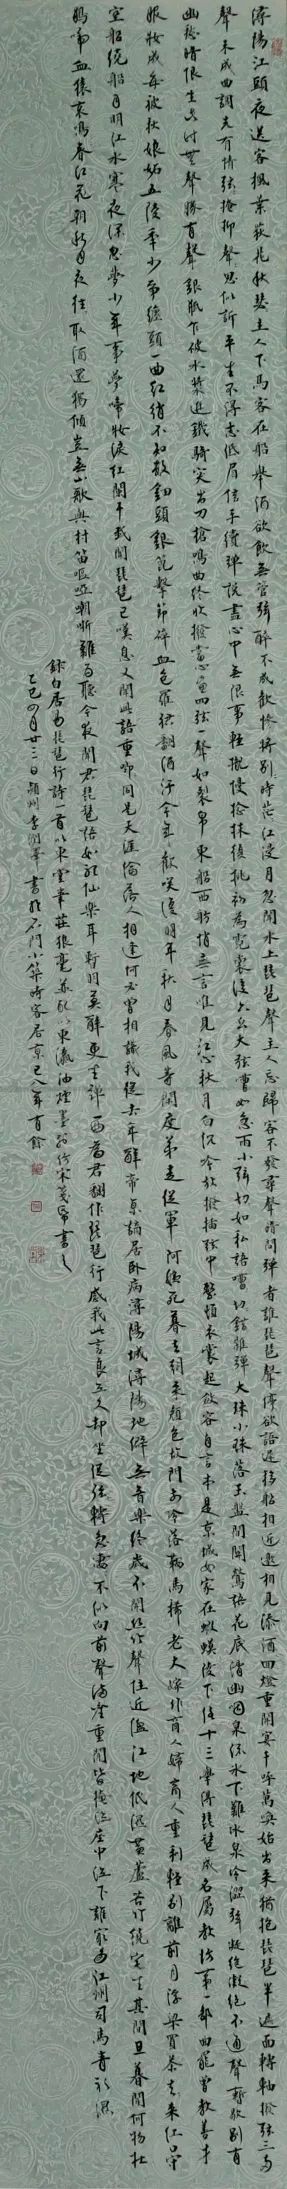 潯陽江頭夜送客楓葉荻花秋瑟主人下馬客在船舉酒欲飲無管弦醉不成歡慘將別時茫江浸月忽聞水上琵琶聲主人忘歸客不發尋聲暗問彈者誰琵琶聲停欲語遲移船相近邀相見添酒回燈重開宴千呼萬喚始出來猶抱琵琶半遮面轉軸撥弦三兩
聲未成曲調先有情弦掩抑聲思似訴平生不得志低眉信手續彈說盡心中無限事輕攏慢撚抹復挑初為霓裳後六幺大弦嘈如急雨小弦切如私語嘈切錯雜彈大珠小珠落玉盤間關鶯語花底滑幽咽泉流水下灘冰泉冷澀弦凝絕凝絕不通聲暫歇別有
幽愁暗恨生此時無聲勝有聲銀瓶乍破水漿迸鐵騎突出刀槍鳴曲終收撥當心畫四弦一聲如裂帛東船西舫悄無言唯見江心秋月白沉吟放撥插弦中整頓衣裳起斂容自言本是京城女家在蝦蟆陵下住十三學得琵琶成名屬教坊第一部曲罷曾教善才
服妝成每被秋娘妬五陵年少爭纏頭一曲紅綃不知數鈿頭銀篦擊節碎血色羅裙翻酒污今年歡笑復明年秋月春風等閒度弟走從軍阿姨死暮去朝來顏色故門前冷落鞍馬稀老大嫁作商人婦商人重利輕別離前月浮梁買茶去來江口守
空船繞船月明江水寒夜深忽夢少年事夢啼妝淚紅闌干我聞琵琶已嘆息又聞此語重唧同是天涯淪落人相逢何必曾相識我從去年辭帝京謫居臥病潯陽城潯陽地僻無音樂終歲不聞絲竹聲住近湓江地低濕黃蘆苦竹繞宅生其間旦暮聞何物杜
鵑啼血猿哀鳴春江花朝秋月夜往取酒還獨傾豈無山歌與村笛嘔啞嘲哳難為聽今夜聞君琵琶語如聽仙樂耳暫明莫辭更坐彈一曲為君翻作琵琶行感我此言良立久却坐促弦轉急淒不似向前聲滿座重聞皆掩泣座中泣下誰最多江州司馬青衫濕
錄白居易琵琶行詩一首以東雲筆莊狼毫東瀛油煙墨仿宋箋紙書之
乙巳四月廿三日潁州李書於石門小築時客居京已八年有餘